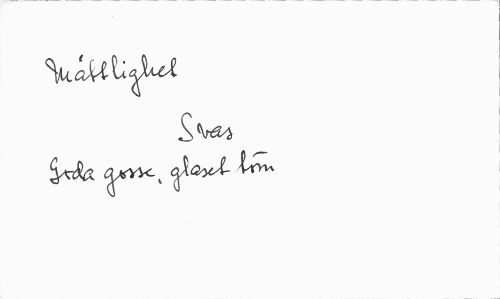 Måttlighet
Svas
Goda gosse, glaset töm